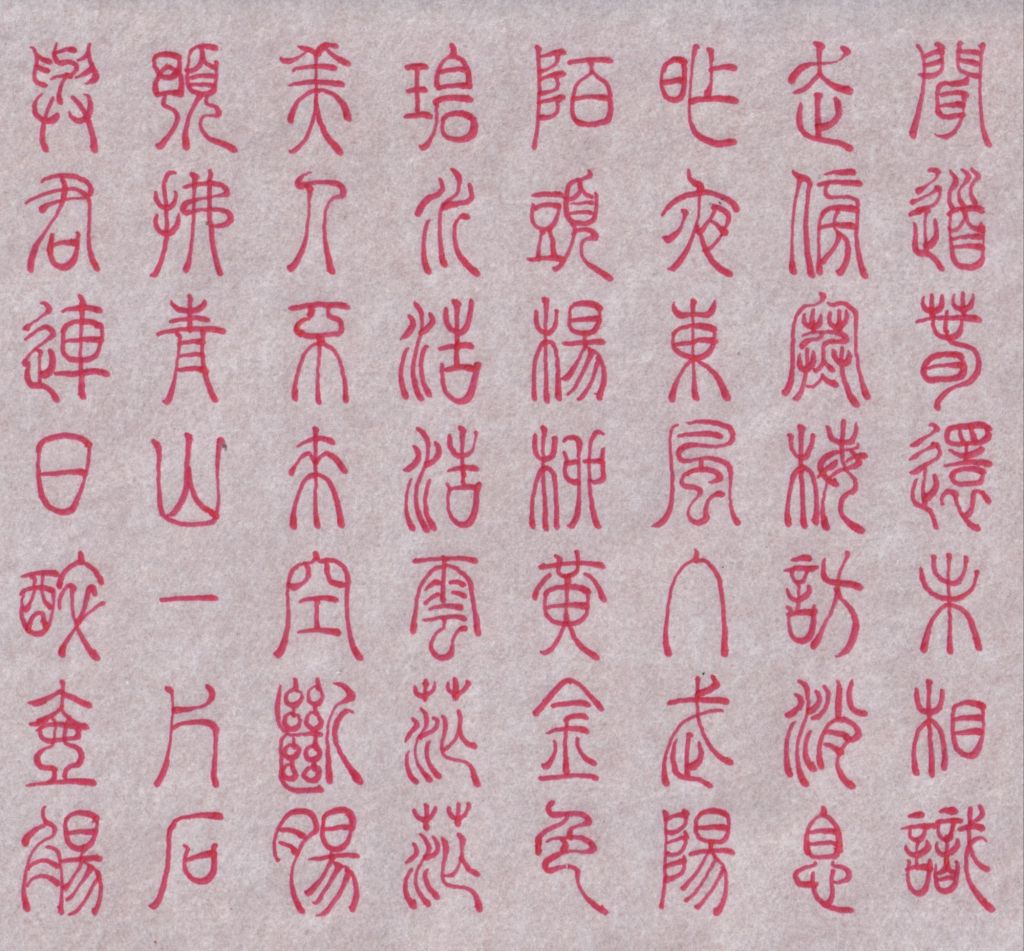 聞道春還未相識
走傍寒梅訪消息
昨夜東風入武陽
陌頭楊柳黃金色
碧水浩浩雲茫茫
美人不來空斷腸
預拂青山一片石
與君連日醉壺觴